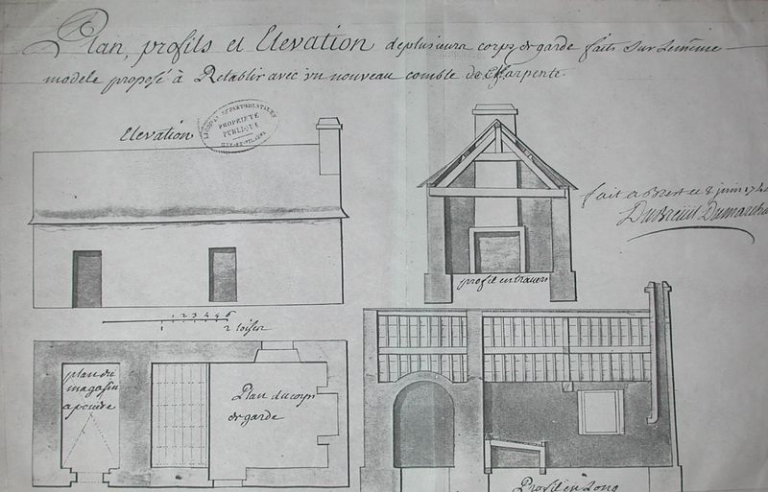 Plan, profils et Elevation de plusieurs corps de garde faits sur le même
modele proposé à Retablir avec un nouveau comble de Charpente.
Elevation
ARCHIVES DEPARTEMENTALES
PROPRIÉTÉ
PUBLIQUE
fait a Brest ce 8 juin 174
DuBreüil Dumarcha
profil en travers
1 2 3 4 5 6
1 2 toises
plan du
magasin
a poudre
Plan du corps
de garde
Profil en Long